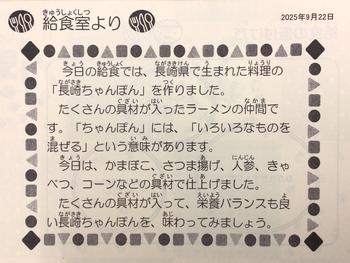 給食室より
2025年9月22日
今日の給食では、長崎県で生まれた料理の
「長崎ちゃんぽん」を作りました。
たくさんの具材が入ったラーメンの仲間で
す。「ちゃんぽん」には、「いろいろなものを
混ぜる」という意味があります。
今日は、かまぼこ、さつま揚げ、人参、きゃ
べつ、コーンなどの具材で仕上げました。
たくさんの具材が入って、栄養バランスも良
い長崎ちゃんぽんを、味わってみましょう。